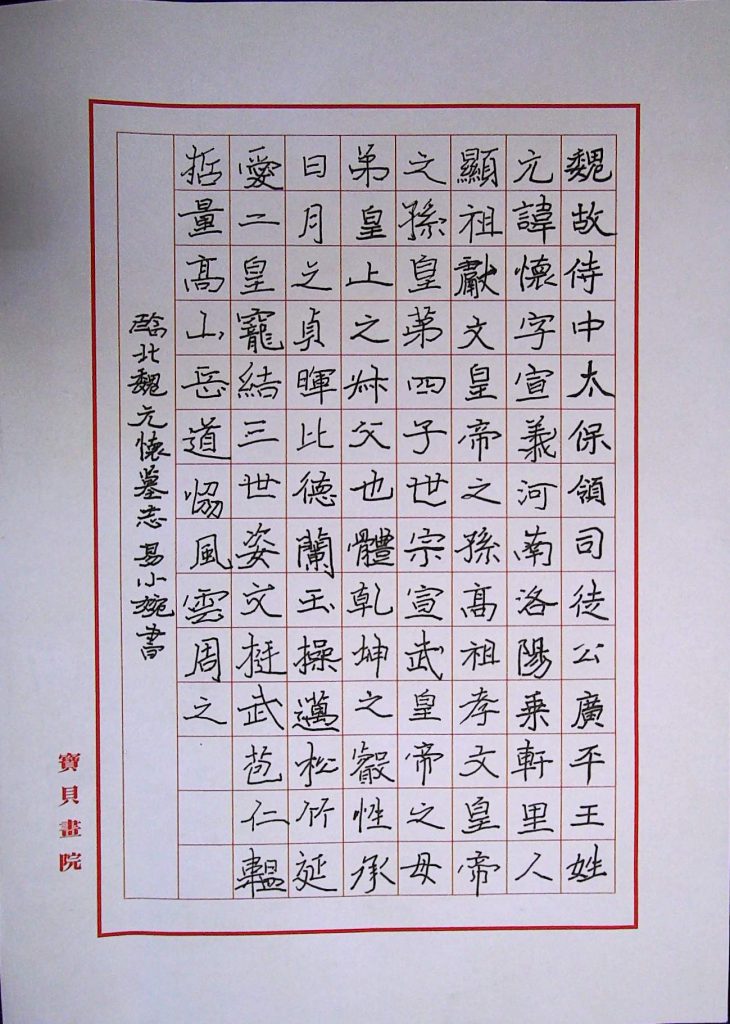 魏故侍中太保領司徒公廣平王姓
元諱懷字宣義河南洛陽乗軒里人
顯祖獻文皇帝之孫高祖孝文皇帝
之孫皇苐四子世宗宣武皇帝之母
弟皇上之叔父也體乹坤之叡性承
日月之貞暉比德蘭玉操邁松竹延
愛二皇寵結三世姿文挺武苞仁韞
哲量高山岳道恊風雲周之
臨北魏元懷墓志 易小婉書
寶貝畫院